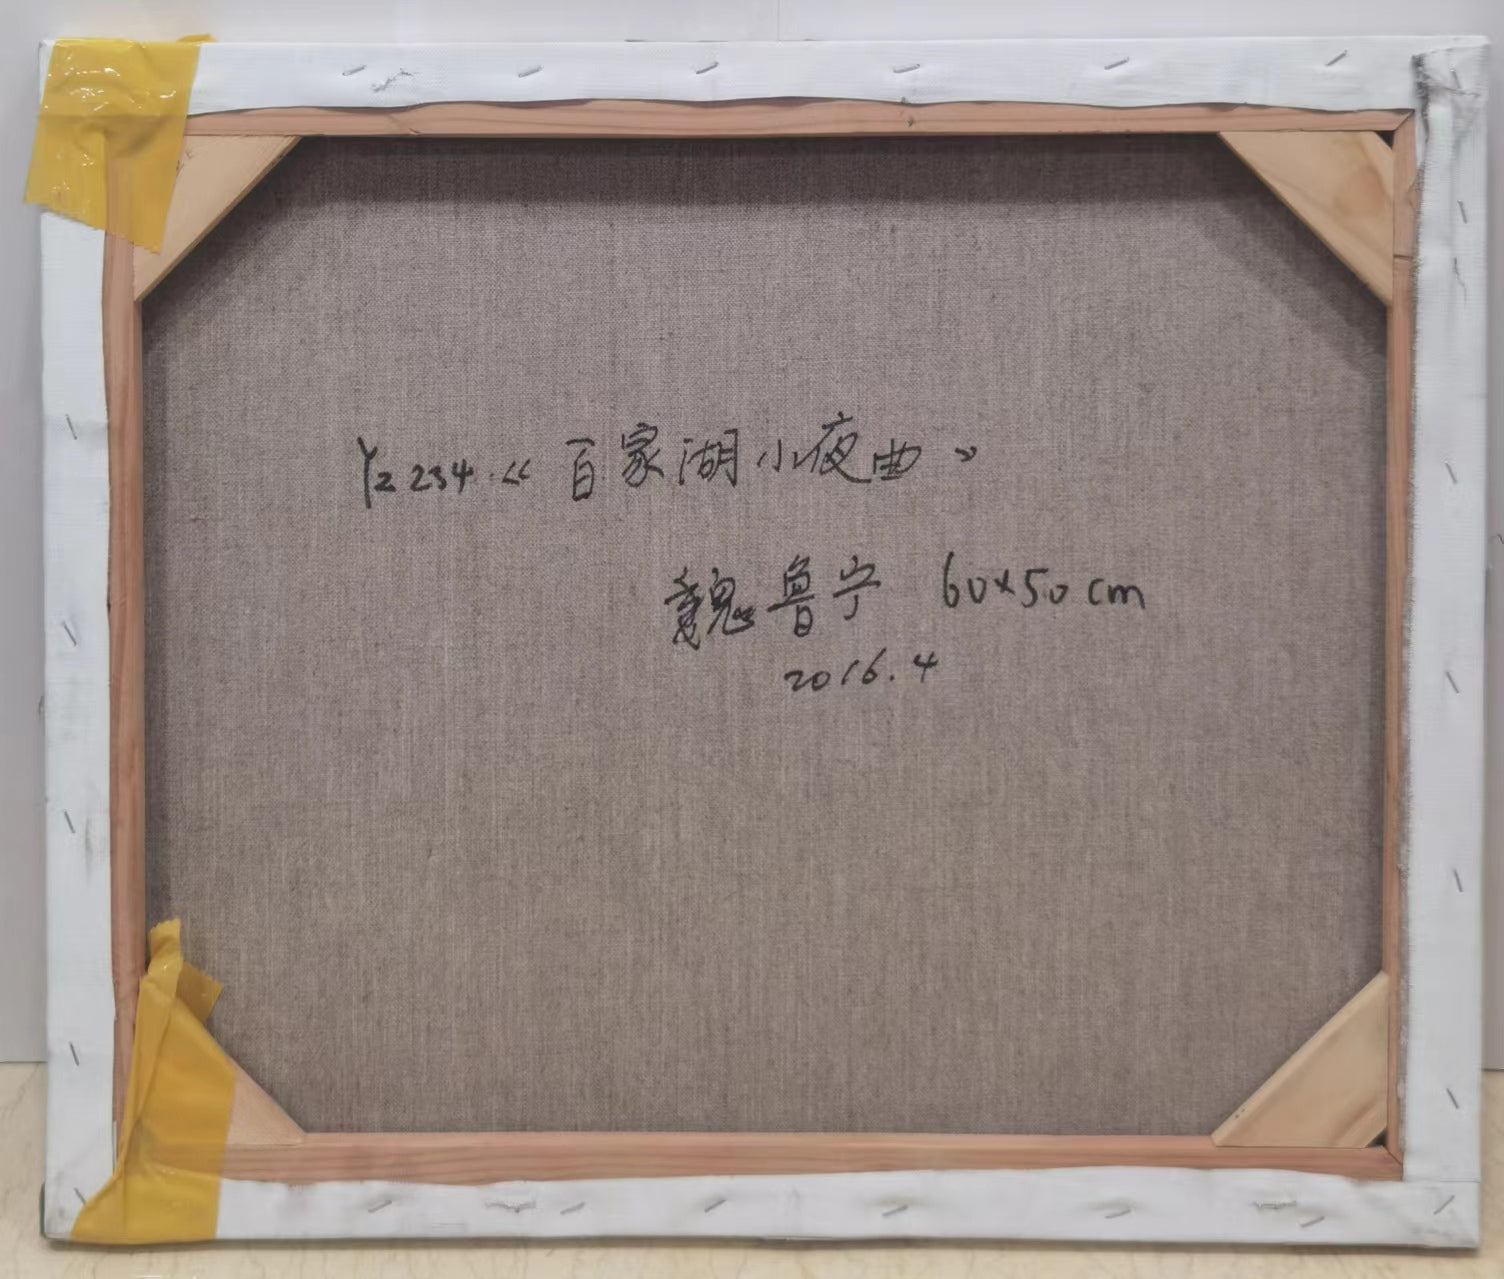 Y2234《百家湖小夜曲》
魏鲁宁 60×50cm
2016.4